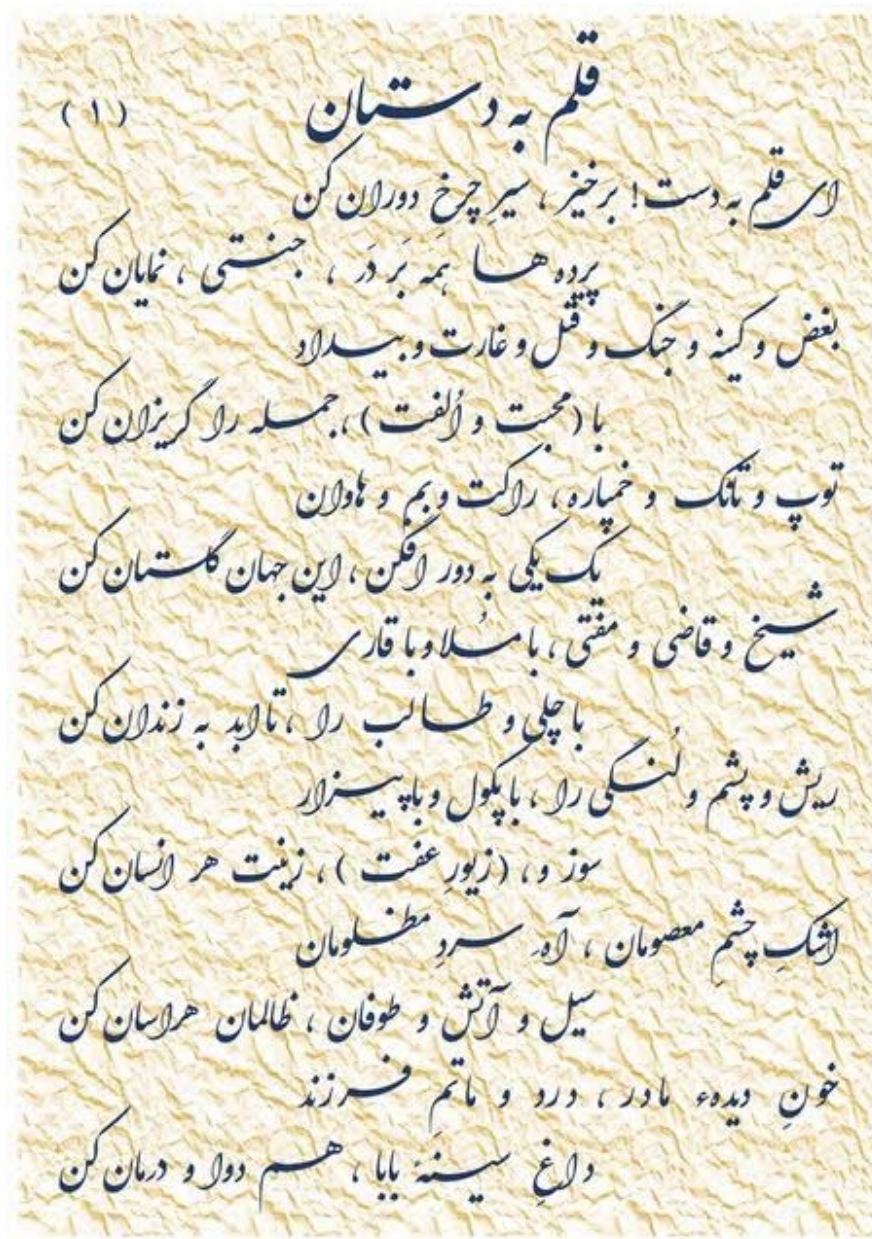 قلم به دستان
(۱)
ای قلم به دست! برخیز، سیرِ چرخِ دوران کن
پرده ها همه بَر دَر، جنتی، نمایان کن
بغض و کینه و جنگ و قتل و غارت و بیداد
با (محبت و اُلفت)، جمله را گریزان کن
توپ و تانک و خمپاره، راکت و بم و هاوان
یک یکی به دور افگن، این جهان گلستان کن
شیخ و قاضی و مفتی، با مُلا و با قاری
با چلی و طالب را، تا ابد به زندان کن
ریش و پشم و لُنگی را، با پکول و با پیزار
سوز و، (زیورِ عفت)، زینت هر انسان کن
اشکِ چشمِ معصومان، آهِ سردِ مظلومان
سیل و آتش و طوفان، ظالمان هراسان کن
خونِ دیدهء مادر، درد و ماتمِ فرزند
داغِ سینهٔ بابا، هم دوا و درمان کن